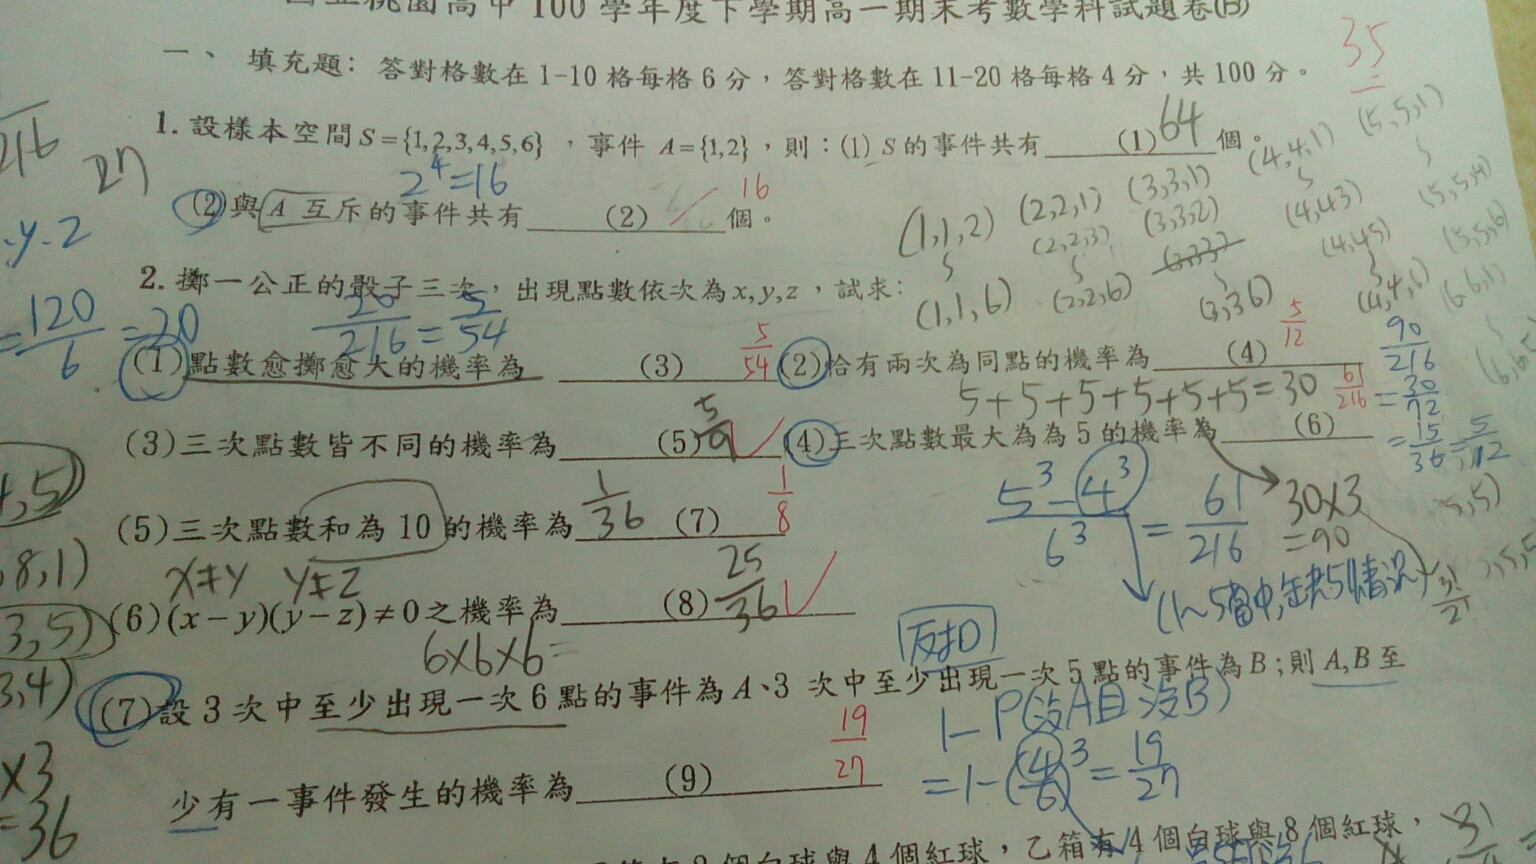 國立桃園高中 100 學年度下學期高一期末考數學科試題卷(B)
35
一、 填充題: 答對格數在 1-10 格每格 6 分，答對格數在 11-20 格每格 4 分，共 100 分。
216
27
1. 設樣本空間 S={1,2,3,4,5,6} ，事件 A={1,2}，則：(1) S 的事件共有 (1) 64 個。
2^4=16
16
(2)與 A 互斥的事件共有 (2) 個。
(1,1,2) (2,2,1) (3,3,1) (4,4,1) (5,5,1)
(2,2,3) (3,3,2) (4,4,3) (5,5,4)
(3,3,3) (4,4,5) (5,5,6)
(1,1,6) (2,2,6) (3,3,6) (4,4,6) (6,6,1)
y.z
2. 擲一公正的骰子三次，出現點數依次為 x,y,z ，試求:
=120/6=20
20/216=5/54
(1)點數愈擲愈大的機率為 (3) 5/54 (2)恰有兩次為同點的機率為 (4) 5/12
90/216
=30/72
=15/36=5/12
5+5+5+5+5+5=30
61/216
(3)三次點數皆不同的機率為 (5) 5/9 (4)三次點數最大為為 5 的機率為 (6)
(5^3-4^3)/6^3=61/216
30×3
=90
(5)三次點數和為 10 的機率為 1/36 (7) 1/8
x≠y y≠z
(1~5當中,缺5情況)
(6)(x-y)(y-z)≠0之機率為 (8) 25/36
6×6×6=
反扣
,5)
8,1)
3,5)
3,4)
(7)設 3 次中至少出現一次 6 點的事件為 A、3 次中至少出現一次 5 點的事件為 B；則 A,B 至
1-P(沒A且沒B)
=1-(4/6)^3=19/27
少有一事件發生的機率為 (9) 19/27
×3
=36
個白球與 4 個紅球，乙箱有 4 個白球與 8 個紅球，